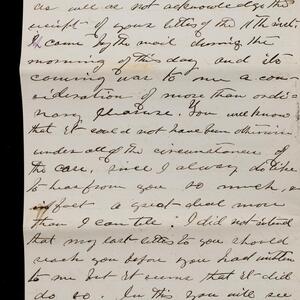 as well as not acknowledge the
receipt of your letter of the 11th inst.
It came by the mail during the
morning of this day and its
coming was to me a con-
sideration of more than ordi-
nary pleasure. You well know
that it could not have been otherwise
under all of the circumstances of
the case, since I always do like
to hear from you so much,
in fact a great deal more
than I can tell. I did not intend
that my last letter to you should
reach you before you had written
to me but it seems that it did
do so. In this you will see